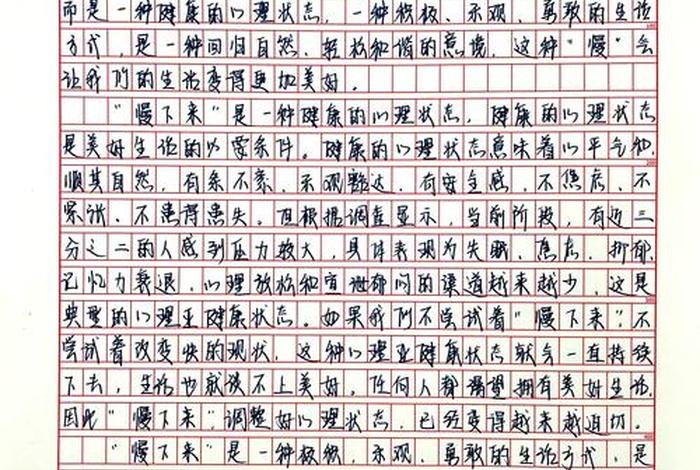 而是一种健康的心理状态，一种积极、乐观、勇敢的生活
方式，是一种回归自然、轻松和谐的意境，这种“慢”会
让我们的生活变得更加美好。
“慢下来”是一种健康的心理状态，健康的心理状态
是美好生活的必要条件。健康的心理状态意味着心平气和、
顺其自然，有条不紊、乐观豁达，有安全感，不焦虑、不
紧张、不患得患失。但根据调查显示，当前阶段，有近三
分之二的人感到压力较大，具体表现为失眠、焦虑、抑郁、
记忆力衰退，心理放松和宣泄郁闷的渠道越来越少，这是
典型的心理亚健康状态。如果我们不尝试着“慢下来”，不
尝试着改变快的现状，这种心理亚健康状态就会一直持续
下去，生活也就谈不上美好，任何人都渴望拥有美好生活，
因此“慢下来”，调整好心理状态，已经变得越来越迫切。
“慢下来”是一种积极、乐观、勇敢的生活方式，是